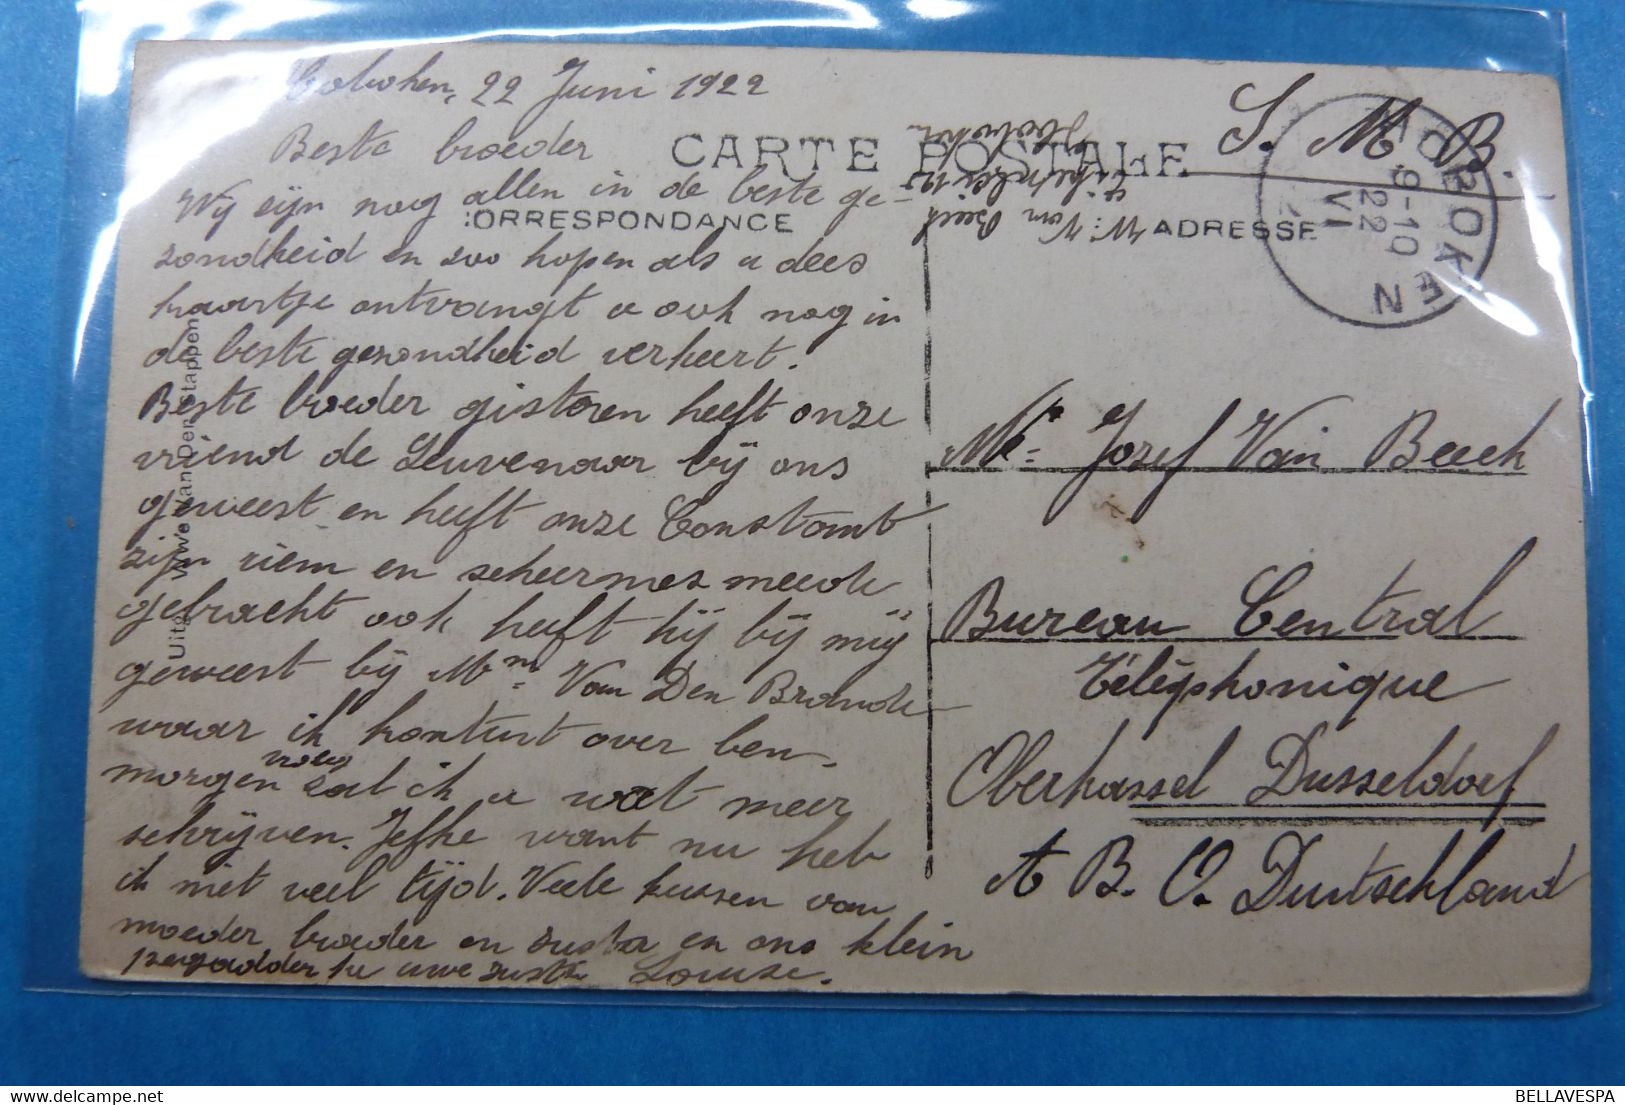 Hoboken, 22 Juni 1922
Beste broeder
Wij zijn nog allen in de beste ge-
zondheid en zoo hopen als u dees
kaartje ontvangt u ook nog in
de beste gezondheid verkeert.
Beste broeder gisteren heeft onze
vriend de Leuvenaar bij ons
geweest en heeft onze Constant
zijn riem en scheermes meede
gebracht ook heeft hij bij mij
geweest bij Mm Van Den Brande
waar ik kontent over ben.
morgen vroeg zal ik u wat meer
schrijven. Jefke want nu heb
ik niet veel tijd. Veele kussen van
moeder broeder en zuster en ons klein
uwe zuster Louise.
CARTE POSTALE
CORRESPONDANCE
ADRESSE
Van Beeck
Hoboken
S. M. B.
HOBOKEN
9-10
22
VI
Mr Jozef Van Beeck
Bureau Central
Téléphonique
Oberkassel Dusseldorf
A B. O. Duitschland
Uitg. Wwe Van Der Stappen
BELLAVESPA